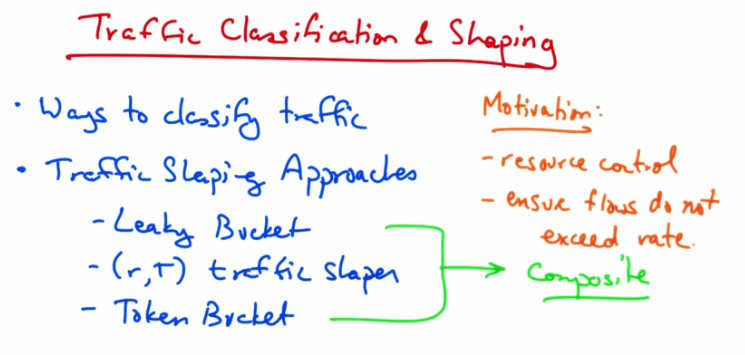 Traffic Classification & Shaping
• Ways to classify traffic
• Traffic Shaping Approaches
- Leaky Bucket
- (r,T) traffic shaper
- Token Bucket
Motivation:
- resource control
- ensure flows do not
exceed rate.
Composite